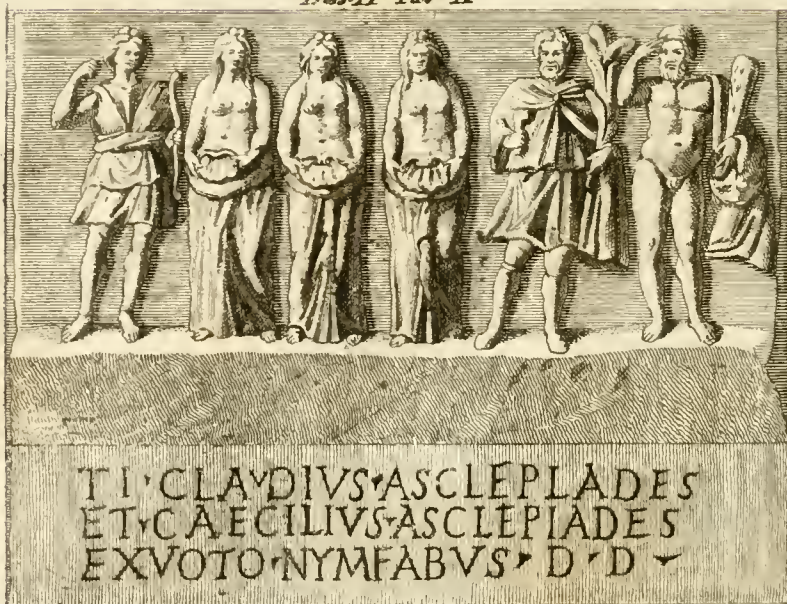 TI · CLAVDIVS · ASCLEPLADES
ET · CAECILIVS · ASCLEPIADES
EXVOTO · NYMFABVS · D · D